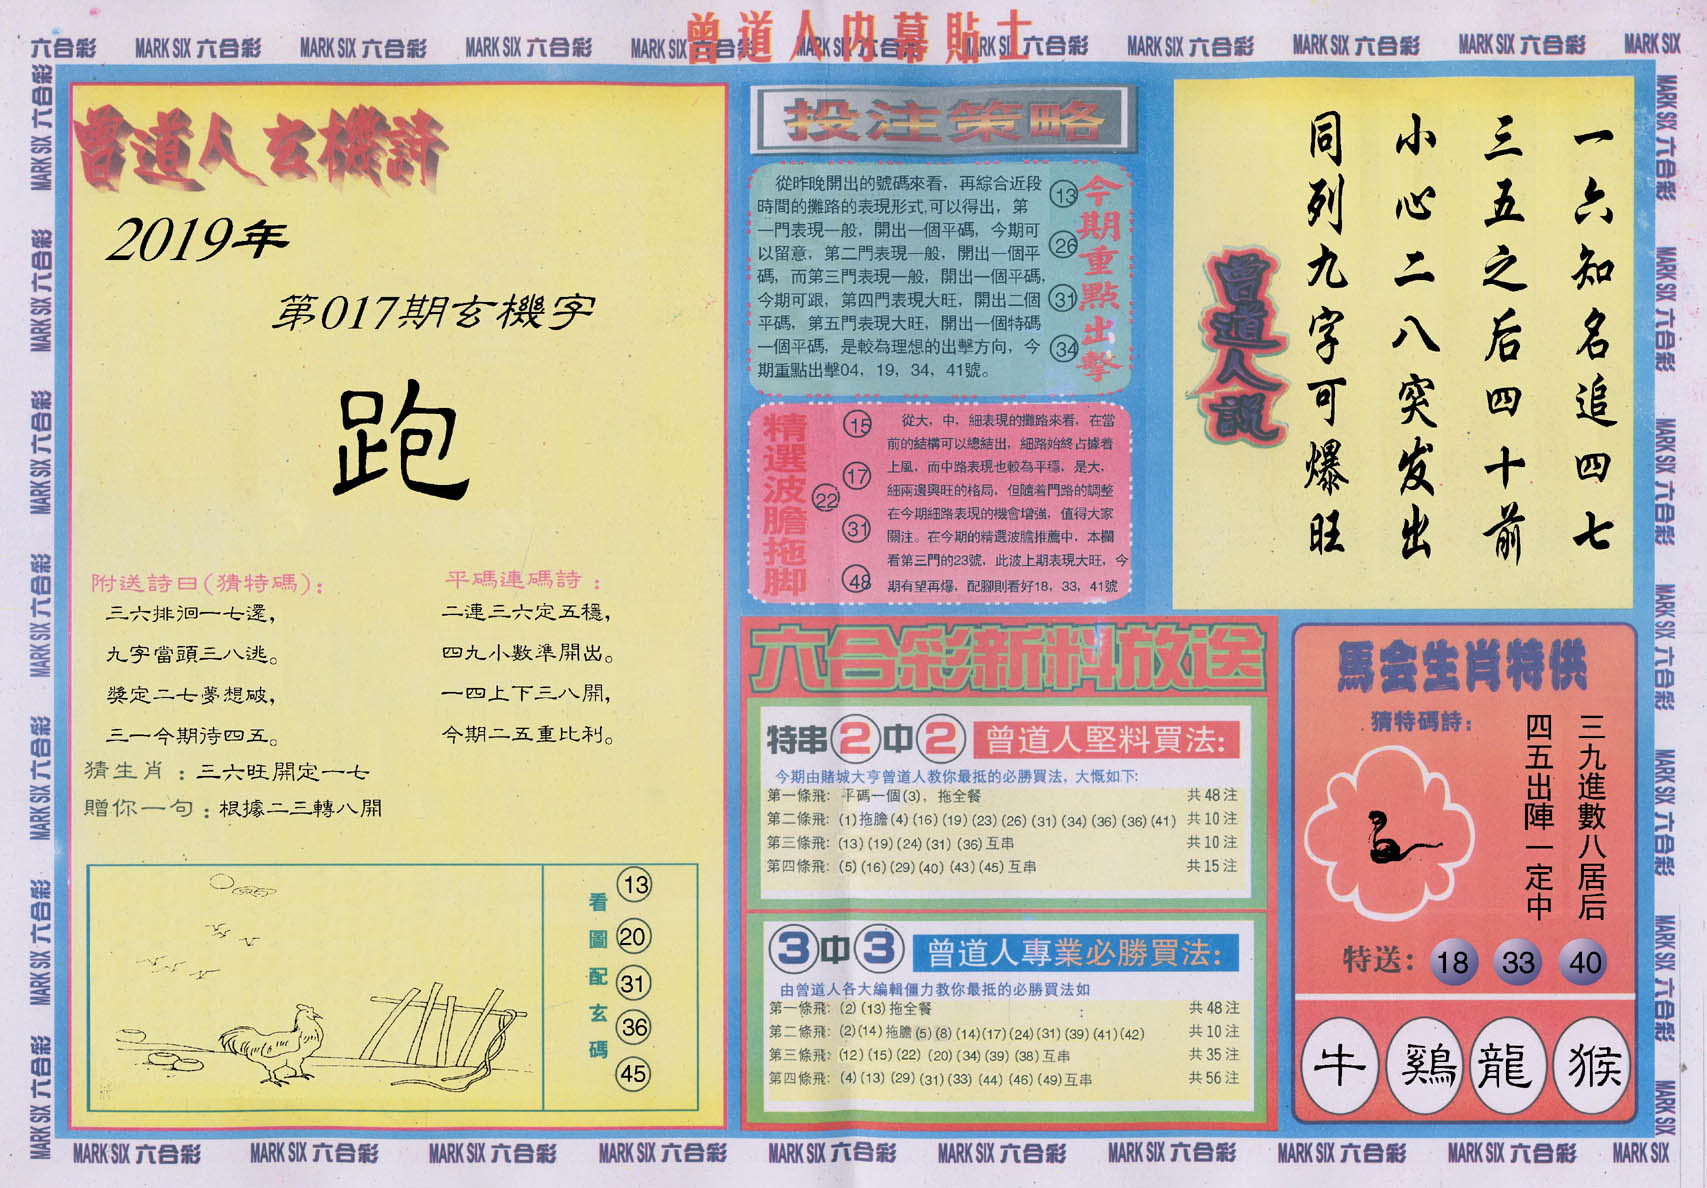 六合彩 MARK SIX 六合彩 MARK SIX 六合彩 MARK SIX 六合彩 MARK SIX 六合彩 MARK SIX 六合彩 MARK SIX 六合彩 MARK SIX 六合彩 MARK SIX 六合彩 MARK SIX 六合彩 MARK SIX
曾道人内幕貼士
曾道人玄機詩
2019年
第017期玄機字
跑
附送詩曰(猜特碼):
三六排徊一七還,
九字當頭三八逃。
獎定二七夢想破,
三一今期待四五。
平碼連碼詩:
二連三六定五穩,
四九小數準開出。
一四上下三八開,
今期二五重比利。
猜生肖:三六旺開定一七
贈你一句:根據二三轉八開
看圖配玄碼
13
20
31
36
45
投注策略
從昨晚開出的號碼來看，再綜合近段
時間的攤路的表現形式,可以得出，第
一門表現一般，開出一個平碼，今期可
以留意，第二門表現一般，開出一個平
碼，而第三門表現一般，開出一個平碼，
今期可跟，第四門表現大旺，開出二個
平碼，第五門表現大旺，開出一個特碼
一個平碼，是較為理想的出擊方向，今
期重點出擊04，19，34，41號。
13
26
31
34
今期重點出擊
精選波膽拖脚
15
17
22
31
48
從大，中，細表現的攤路來看，在當
前的結構可以總結出，細路始終占據着
上風，而中路表現也較為平穩，是大，
細兩邊興旺的格局，但隨着門路的調整
在今期細路表現的機會增強，值得大家
關注。在今期的精選波膽推薦中，本欄
看第三門的23號，此波上期表現大旺，今
期有望再爆，配腳則看好18，33，41號
六合彩新料放送
特串2中2 曾道人堅料買法:
今期由賭城大亨曾道人教你最抵的必勝買法，大慨如下:
第一條飛: 平碼一個(3)，拖全餐 共48注
第二條飛: (1)拖膽(4)(16)(19)(23)(26)(31)(34)(36)(36)(41) 共10注
第三條飛: (13)(19)(24)(31)(36)互串 共10注
第四條飛: (5)(16)(29)(40)(43)(45)互串 共15注
3中3 曾道人專業必勝買法:
由曾道人各大編輯僵力教你最抵的必勝買法如
第一條飛: (2)(13)拖全餐 共48注
第二條飛: (2)(14)拖膽(5)(8)(14)(17)(24)(31)(39)(41)(42) 共10注
第三條飛: (12)(15)(22)(20)(34)(39)(38)互串 共35注
第四條飛: (4)(13)(29)(31)(33)(44)(46)(49)互串 共56注
一六知名追四七
三五之后四十前
小心二八突发出
同列九字可爆旺
曾道人説
馬会生肖特供
猜特碼詩:
三九進數八居后
四五出陣一定中
特送: 18 33 40
牛 鷄 龍 猴
MARK SIX 六合彩 MARK SIX 六合彩 MARK SIX 六合彩 MARK SIX 六合彩 MARK SIX 六合彩 MARK SIX 六合彩 MARK SIX 六合彩 MARK SIX 六合彩 MARK SIX 六合彩 MARK SIX